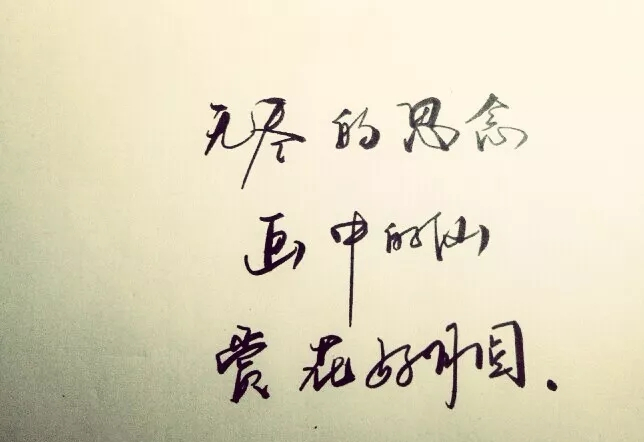 无尽的思念
画中的仙
赏花好月圆.